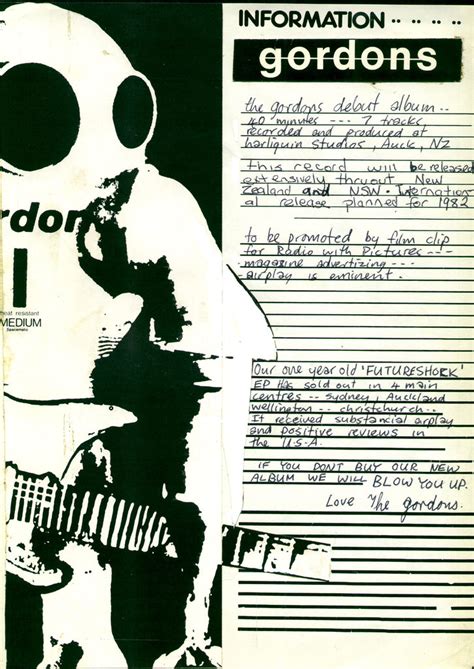 INFORMATION .. .. .. ..
gordons
the gordons debut album --
40 minutes --- 7 tracks,
recorded and produced at
harliquin studios, Auck, NZ
this record will be released
extensively thruout New
Zealand and NSW. Internation
al release planned for 1982
to be promoted by film clip
for Radio with Pictures ---
magazine advertizing ---
airplay is eminent.
Our one year old 'FUTURESHOCK'
EP Has sold out in 4 main
centres -- Sydney, Auckland
wellington -- christchurch --
It received substancial arplay
and positive reviews in
the U.S.A.
IF YOU DONT BUY OUR NEW
ALBUM WE WILL BLOW YOU UP.
Love The gordons.
rdon
heat resistant
MEDIUM